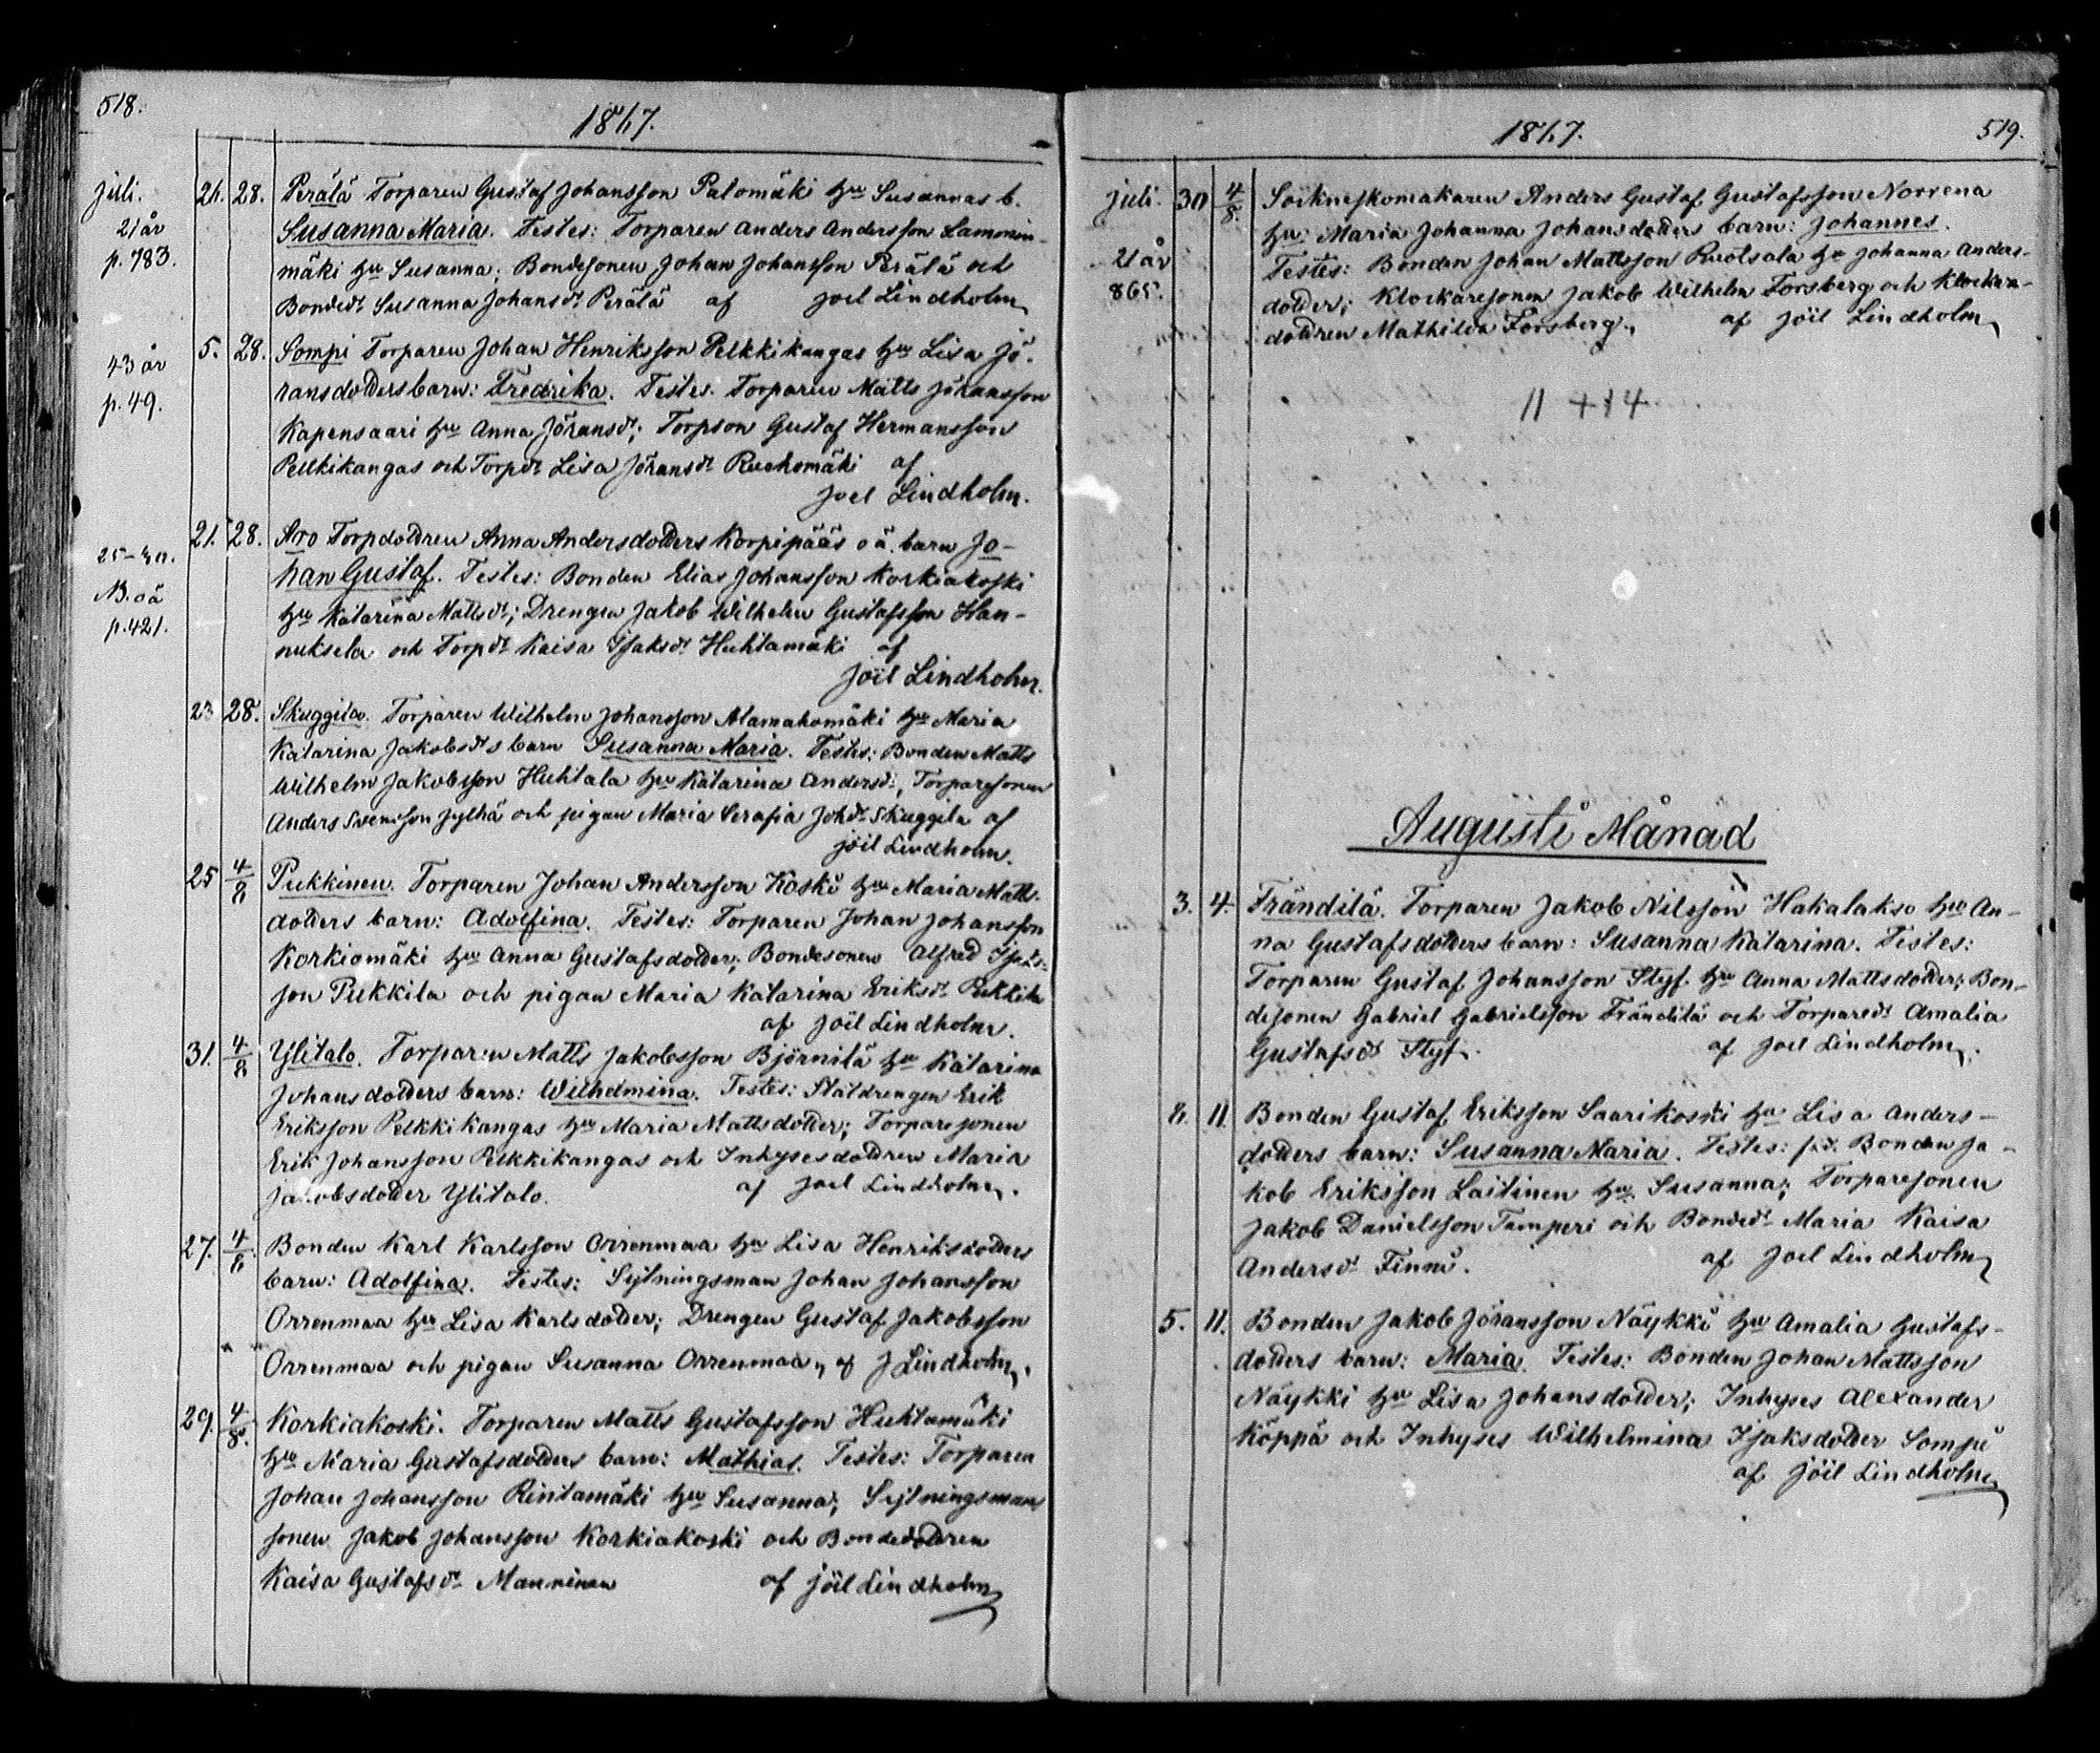 518.
1867.
Juli. 26. 28. Perälä Torparen Gustaf Johansson Palomäki hu Susannas b.
21 år Susanna Maria. Testes: Torparen Anders Andersson Lamminmäki
p. 783. mäki hu Susanna; Bondesonen Johan Johansson Perälä och
Bondedr Susanna Johansdr Perälä af Joel Lindholm
5. 28. Sompi Torparen Johan Henriksson Pelkkikangas hu Lisa Jö-
43 år ransdotters barn: Fredrika. Testes. Torparen Matts Jöransson
p. 49. Kapensaari hu Anna Jöransdr; Torpson Gustaf Hermansson
Pelkikangas och Torpdr Lisa Jöransdr Ruohomäki af
Joel Lindholm.
21. 28. Aro Torpdottren Anna Andersdotters Korpipääs o ä. barn Jo-
25-30. han Gustaf. Testes: Bonden Elias Johansson Korkiakoski
NB. oä hu Katarina Mattsdr; Drengen Jakob Wilhelm Gustafsson Han-
p. 421. nuksela och Torpdr Kaisa Isaksdr Huhtamäki af
Joel Lindholm.
23 28. Skuggila. Torparen Wilhelm Johansson Mamakomäki hu Maria
Katarina Jakobsdrs barn Susanna Maria. Testes: Bonden Matts
Wilhelm Jakobsson Huhtala hu Katarina Andersdr, Torparesonen
Anders Svensson Jylhä och pigan Maria Serafia Johdr Skuggila af
Joel Lindholm.
25 4/8 Pukkinen. Torparen Johan Andersson Koski hu Maria Matts-
dotters barn: Adolfina. Testes: Torparen Johan Johansson
Korkiomäki hu Anna Gustafsdotter; Bondesonen Alfred Isaks-
son Pukkila och pigan Maria Katarina Eriksdr Pukkila
af Joel Lindholm.
31. 4/8 Ylitalo. Torparen Matts Jakobsson Björnilä hu Katarina
Johansdotters barn: Wilhelmina. Testes: Statdrengen Erik
Eriksson Pelkkikangas hu Maria Mattsdotter; Torparesonen
Erik Johansson Pelkkikangas och Inhysesdottren Maria
Jakobsdotter Ylitalo. af Joel Lindholm.
27. 4/8 Bonden Karl Karlsson Orrenmaa hu Lisa Henriksdotters
barn: Adolfina. Testes: Sytningsman Johan Johansson
Orrenmaa hu Lisa Karlsdotter; Drengen Gustaf Jakobsson
Orrenmaa och pigan Susanna Orrenmaa, af J Lindholm.
29. 4/8. Korkiakoski. Torparen Matts Gustafsson Huhtamäki
hu Maria Gustafsdotters barn: Mathias. Testes: Torparen
Johan Johansson Rintamäki hu Susanna; Sytningsmans
sonen Jakob Johansson Korkiakoski och Bondedottren
Kaisa Gustafsdr Manninen af Joel Lindholm
1867.
519.
Juli. 30 4/8. Socknskomakaren Anders Gustaf Gustafsson Norrena
hu Maria Johanna Johansdotters barn: Johannes.
21 år Testes: Bonden Johan Mattsson Ruotsala hu Johanna Anders-
865. dotter; Klockaresonen Jakob Wilhelm Forsberg och Klockare-
dottren Mathilda Forsberg. af Joel Lindholm
11 + 14
Augusti Månad
3. 4. Frändilä. Torparen Jakob Nilsson Hakalakso hu An-
na Gustafsdotters barn: Susanna Katarina. Testes:
Torparen Gustaf Johansson Styf hu Anna Mattsdotter; Bon-
desonen Gabriel Gabrielsson Frändilä och Torparedr Amalia
Gustafsdr Styf. af Joel Lindholm.
8. 11 Bonden Gustaf Eriksson Saarikoski hu Lisa Anders-
dotters barn: Susanna Maria. Testes: f.d. Bonden Ja-
kob Eriksson Laitinen hu Susanna; Torparesonen
Jakob Danielsson Tamperi och Bondedr Maria Kaisa
Andersdr Finni. af Joel Lindholm
5. 11. Bonden Jakob Jöransson Näykki hu Amalia Gustafs-
dotters barn: Maria. Testes: Bonden Johan Mattsson
Näykki hu Lisa Johansdotter; Inhyses Alexander
Köppä och Inhyses Wilhelmina Isaksdotter Sompi
af Joel Lindholm